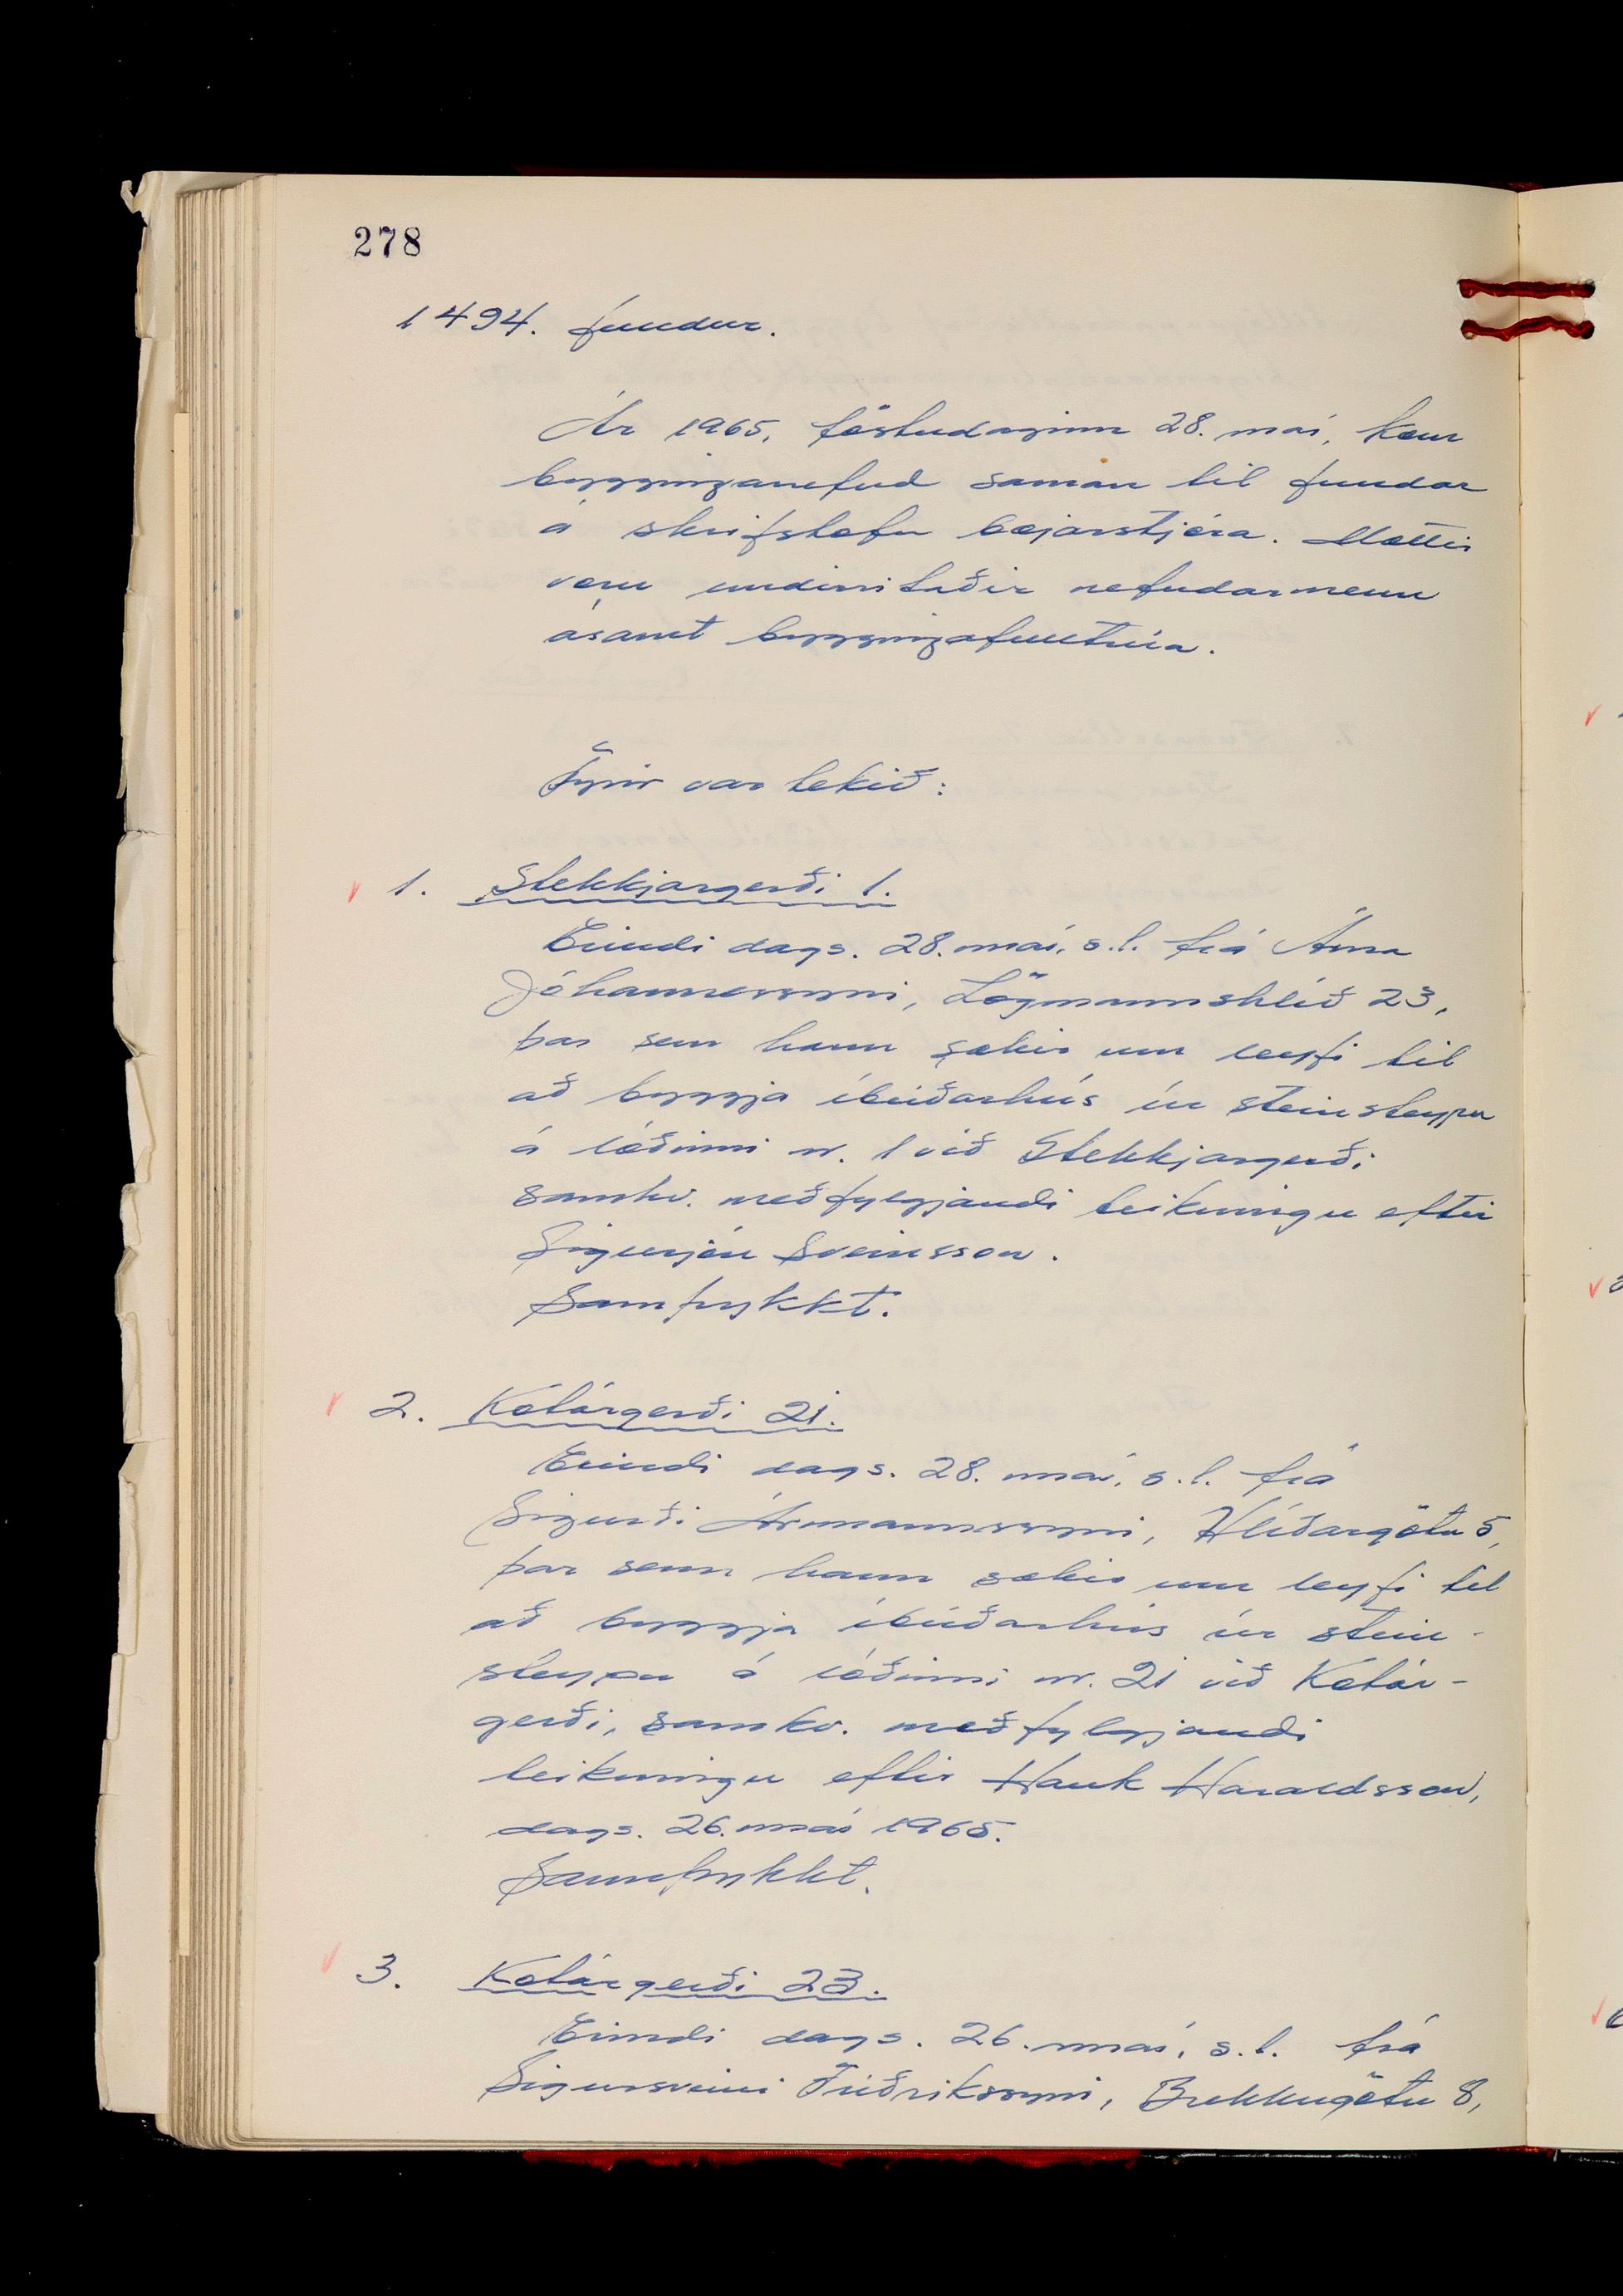 278
1494. fundur.
Ár 1965, föstudaginn 28. maí, kom
bygginganefnd saman til fundar
á skrifstofu bæjarstjóra. Mættir
voru undirritaðir nefndarmenn
ásamt byggingafulltrúa.
Fyrir var tekið:
1. Stekkjargerði 1.
Erindi dags. 28. maí, s.l. frá Árna
Jóhannessyni, Lögmannshlíð 23,
þar sem hann sækir um leyfi til
að byggja íbúðarhús úr steinsteypu
á lóðinni nr. 1 við Stekkjargerði
samkv. meðfylgjandi teikningu eftir
Sigurjón Sveinsson.
Samþykkt.
2. Kotárgerði 21.
Erindi dags. 28. maí, s.l. frá
Sigurði Ármannssyni, Hlíðargötu 5,
þar sem hann sækir um leyfi til
að byggja íbúðarhús úr stein-
steypu á lóðinni nr. 21 við Kotár-
gerði, samkv. meðfylgjandi
teikningu eftir Hauk Haraldsson,
dags. 26. maí 1965.
Samþykkt.
3. Kotárgerði 23.
Erindi dags. 26. maí, s.l. frá
Sigursveini Friðrikssyni, Brekkugötu 8,